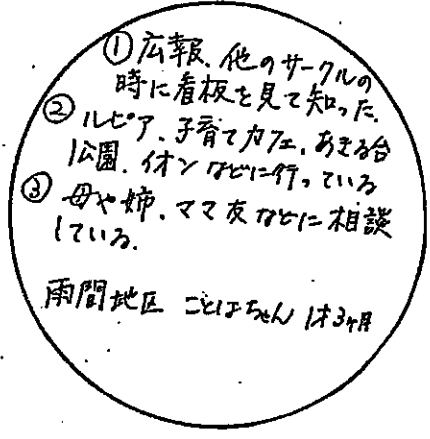 ① 広報、他のサークルの
時に看板を見て知った。
② ルピア、子育てカフェ、あきる台
公園、イオンなどに行っている
③ 母や姉、ママ友などに相談
している。
雨間地区 ことはちゃん 1才3ヶ月